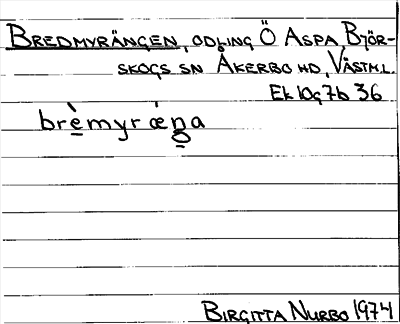 BREDMYRÄNGEN, ODLING Ö ASPA, BJÖR-
SKOGS SN ÅKERBO HD, VÄSTML.
Ek 10g7b 36
brèmyrǽŋa
BIRGITTA NURBO 1974